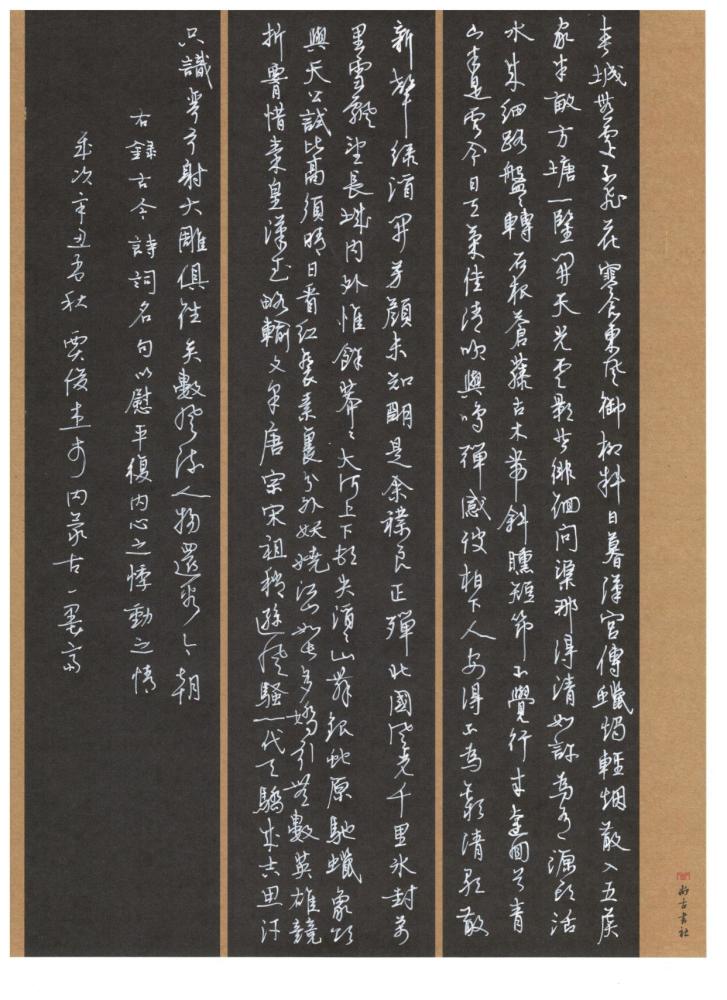 春城無處不飛花寒食東風御柳斜日暮漢宮傳蠟燭輕烟散入五侯
家半畝方塘一鑒開天光雲影共徘徊問渠那得清如許為有源頭活
水來細路盤〻轉石根蒼藤古木帶斜曛短笻不覺行來遠回首青
山半是雲今日天氣佳清吹與鳴彈感彼柏下人安得不為歡清歌散
新聲綠酒開芳顏未知明余襟良殫北國風光千里冰封萬
里雪飄望長城內外惟餘莽〻大河上下頓失滔〻山舞銀蛇原馳蠟象欲
與天公試比高須晴日看紅裝素裹分外妖嬈江山如此多嬌引無數英雄競
折腰惜秦皇漢武略輸文采唐宗宋祖稍遜風騷一代天驕成吉思汗
只識彎弓射大雕俱往矣數風流人物還看今朝
右錄古今詩詞名句以慰平復內心之悸動之情
歲次辛丑孟秋賈俊內蒙古一墨齋
尚古書社